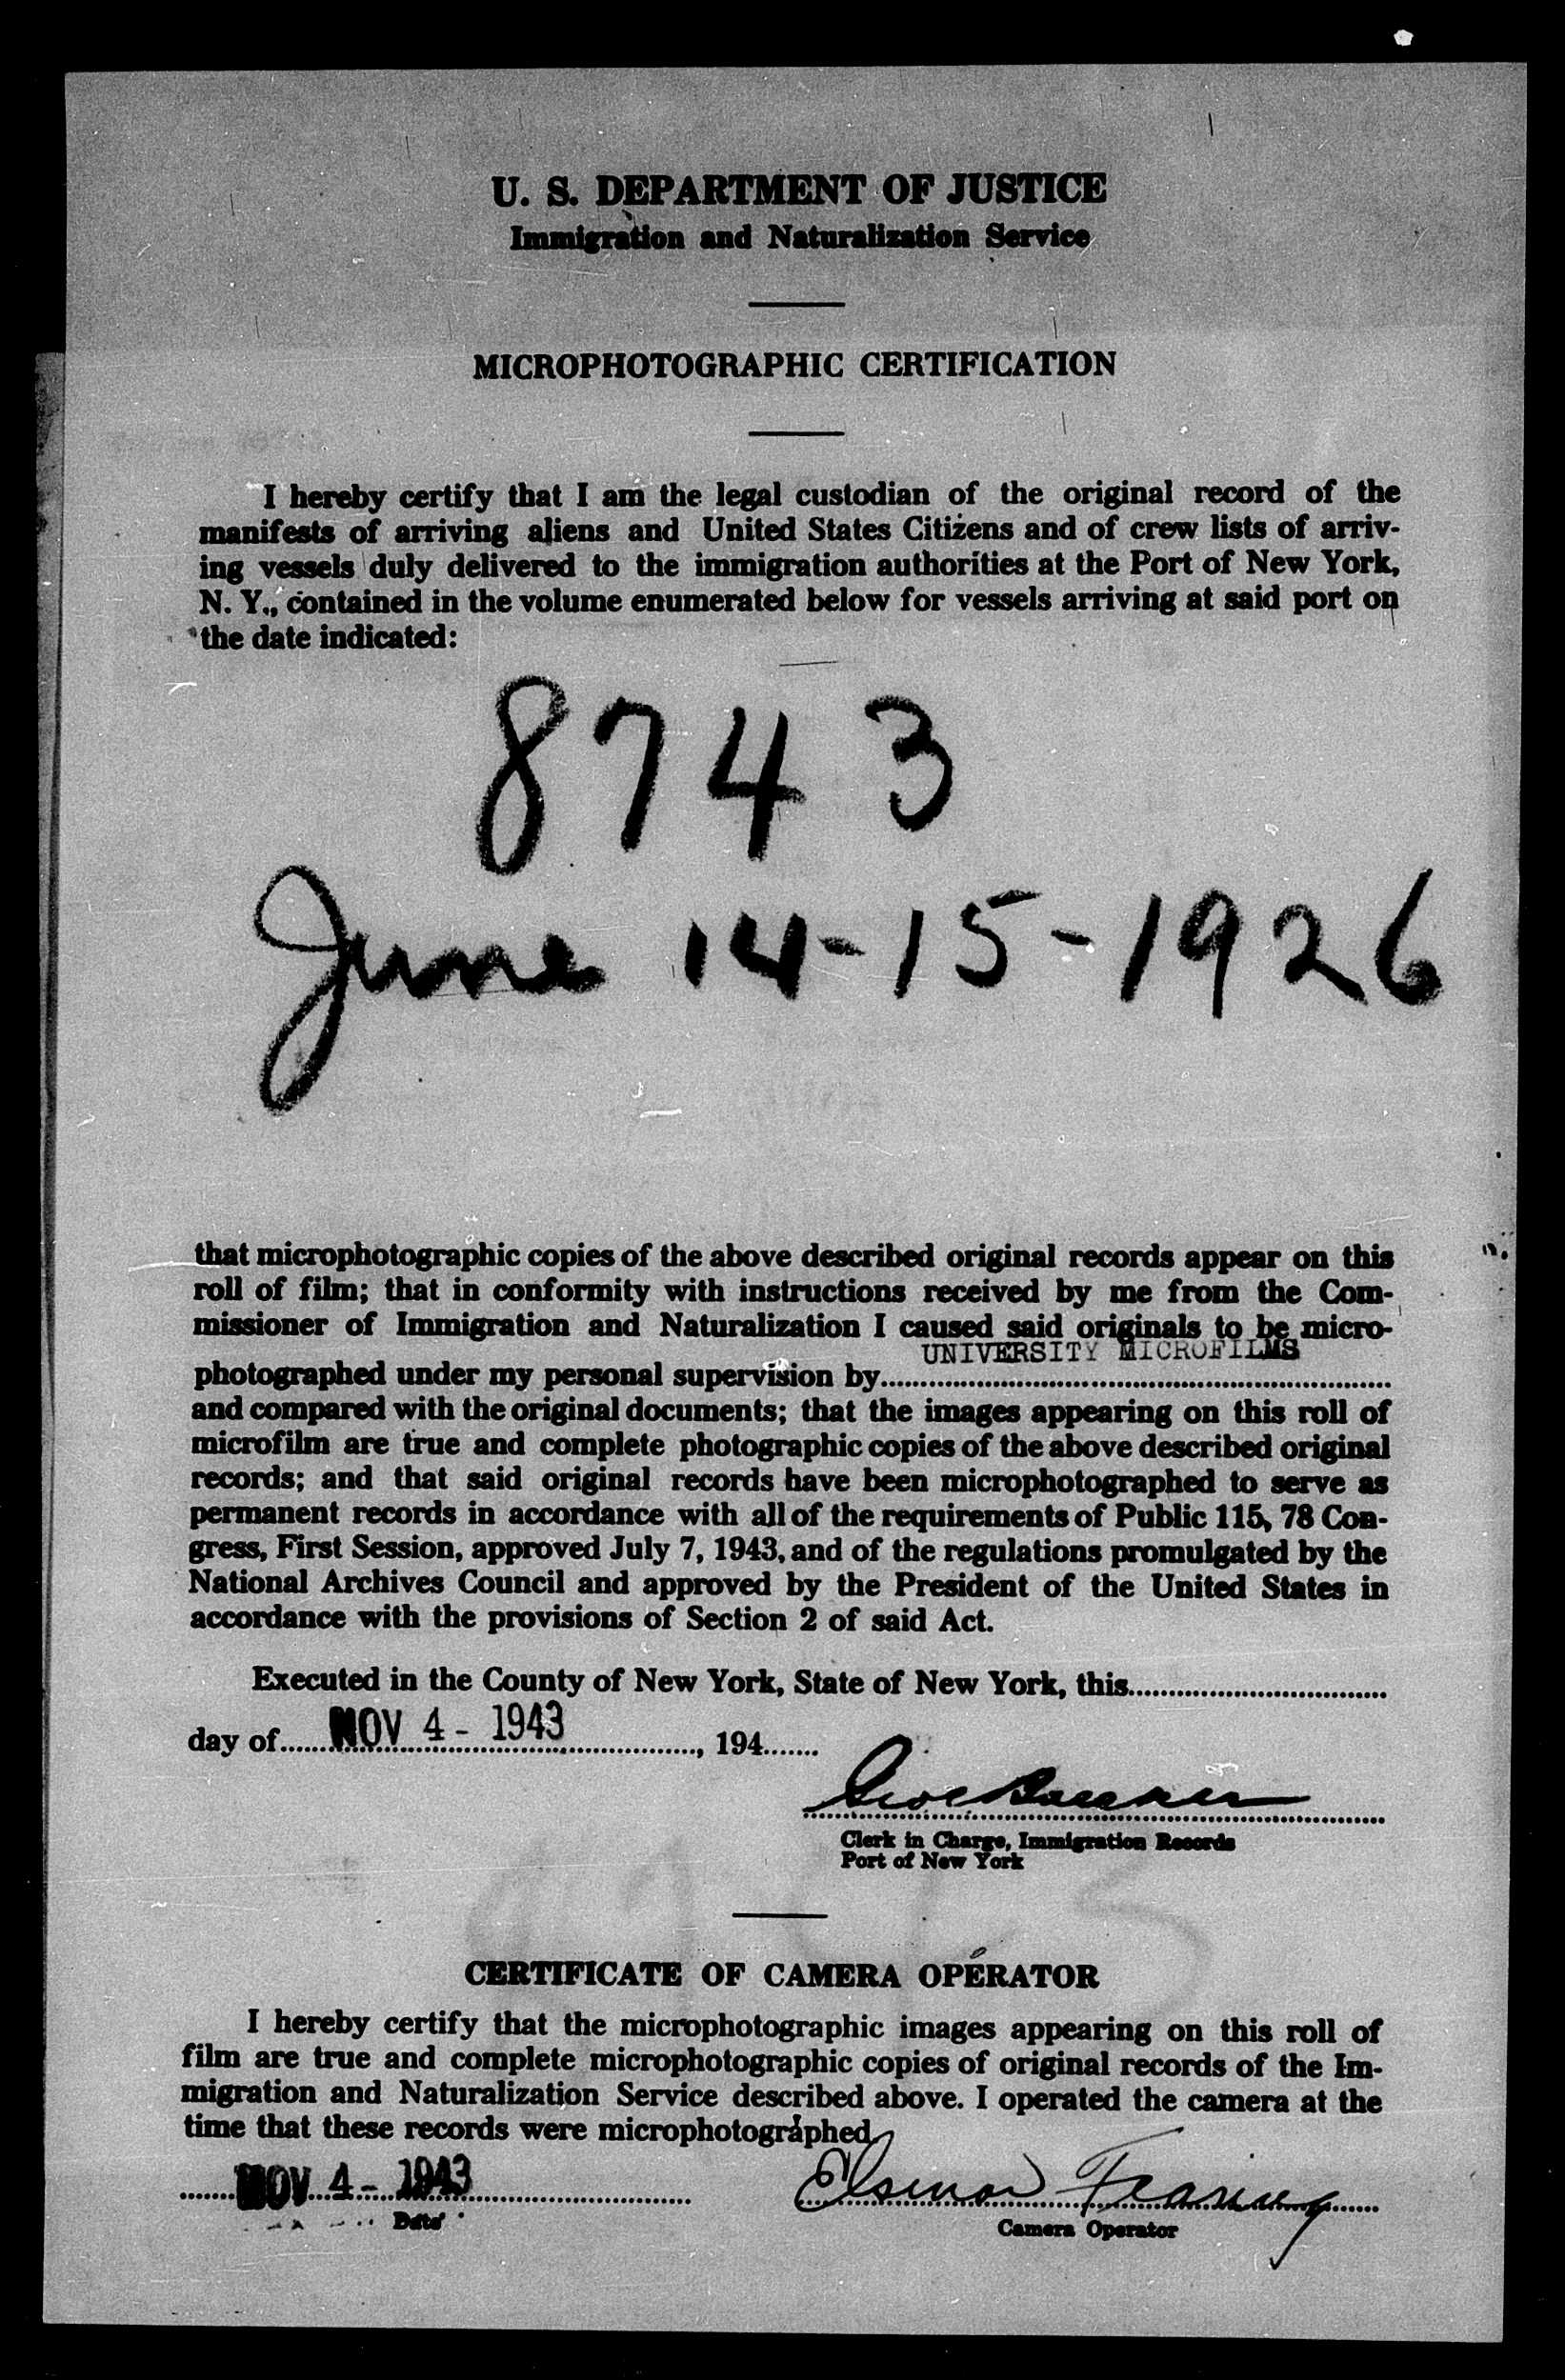 U. S. DEPARTMENT OF JUSTICE
Immigration and Naturalization Service
MICROPHOTOGRAPHIC CERTIFICATION
I hereby certify that I am the legal custodian of the original record of the
manifests of arriving aliens and United States Citizens and of crew lists of arriv-
ing vessels duly delivered to the immigration authorities at the Port of New York,
N. Y., contained in the volume enumerated below for vessels arriving at said port on
the date indicated:
8743
June 14-15-1926
that microphotographic copies of the above described original records appear on this
roll of film; that in conformity with instructions received by me from the Com-
missioner of Immigration and Naturalization I caused said originals to be micro-
UNIVERSITY MICROFILMS
photographed under my personal supervision by
and compared with the original documents; that the images appearing on this roll of
microfilm are true and complete photographic copies of the above described original
records; and that said original records have been microphotographed to serve as
permanent records in accordance with all of the requirements of Public 115, 78 Con-
gress, First Session, approved July 7, 1943, and of the regulations promulgated by the
National Archives Council and approved by the President of the United States in
accordance with the provisions of Section 2 of said Act.
Executed in the County of New York, State of New York, this
day of NOV 4 - 1943, 194
Clerk in Charge, Immigration Records
Port of New York
CERTIFICATE OF CAMERA OPERATOR
I hereby certify that the microphotographic images appearing on this roll of
film are true and complete microphotographic copies of original records of the Im-
migration and Naturalization Service described above. I operated the camera at the
time that these records were microphotographed.
NOV 4 - 1943
Date
Camera Operator